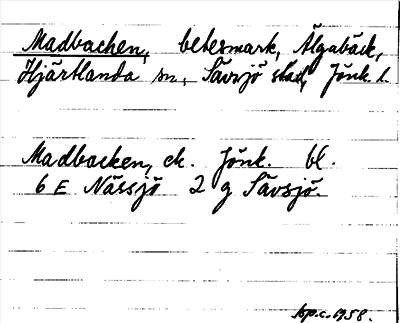 Madbacken, betesmark, Älgabäck,
Hjärtlanda sn, Sävsjö stad, Jönk. l.
Madbacken, ek. Jönk. bl.
6 E Nässjö 2 g Sävsjö.
top.c. 1958.